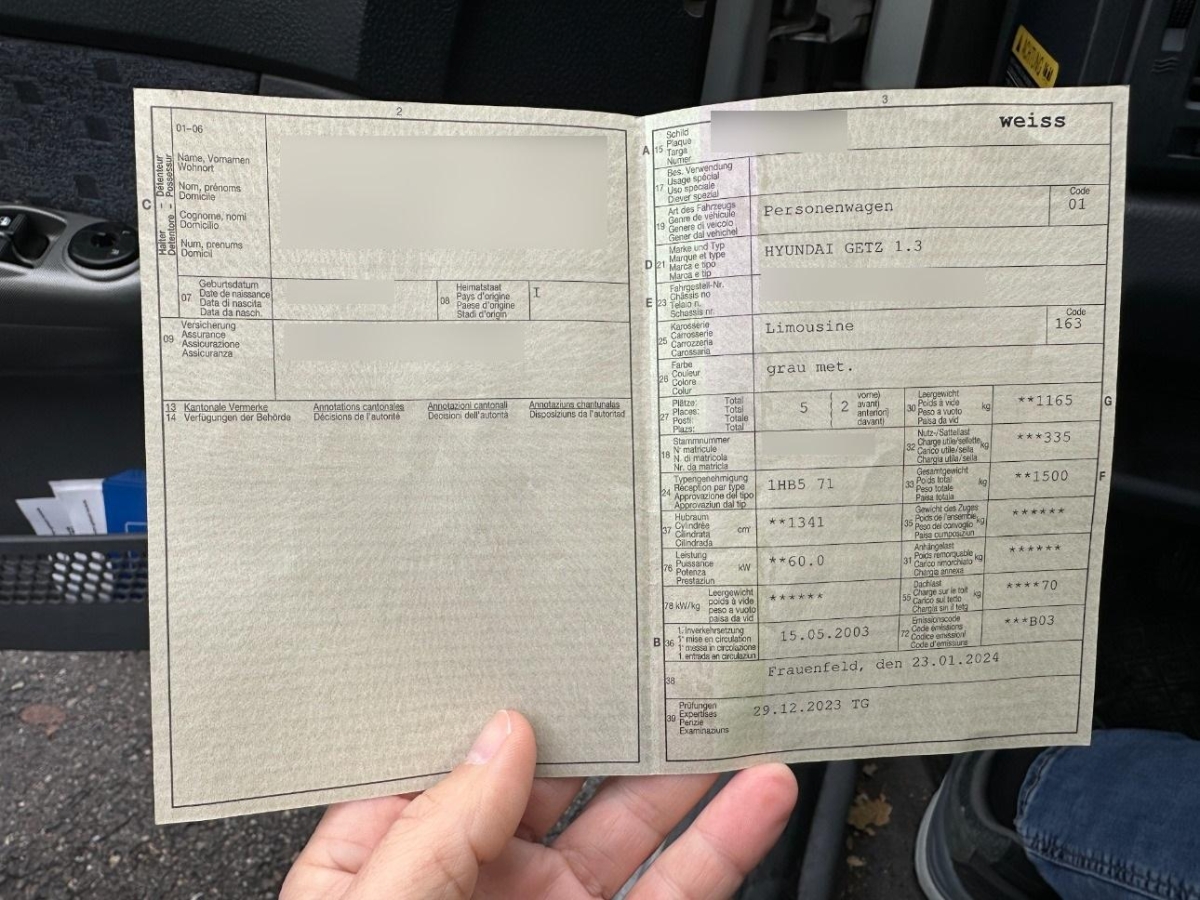 2
01-06
C
Halter – Détenteur
Detentore – Possessur
Name, Vornamen
Wohnort
Nom, prénoms
Domicile
Cognome, nomi
Domicilio
Num, prenums
Domicil
07
Geburtsdatum
Date de naissance
Data di nascita
Data da nasch.
08
Heimatstaat
Pays d'origine
Paese d'origine
Stadi d'origin
I
09
Versicherung
Assurance
Assicurazione
Assicuranza
13 Kantonale Vermerke
14 Verfügungen der Behörde
Annotations cantonales
Décisions de l'autorité
Annotazioni cantonali
Decisioni dell'autorità
Annotaziuns chantunalas
Disposiziuns da l'autoritad
3
A 15
Schild
Plaque
Targa
Numer
weiss
17
Bes. Verwendung
Usage spécial
Uso speciale
Diever spezial
19
Art des Fahrzeugs
Genre de véhicule
Genere di veicolo
Gener dal vehichel
Personenwagen
Code
01
D 21
Marke und Typ
Marque et type
Marca e tipo
Marca e tip
HYUNDAI GETZ 1.3
E 23
Fahrgestell-Nr.
Châssis no
Telaio n.
Schassis nr.
25
Karosserie
Carrosserie
Carrozzeria
Carossaria
Limousine
Code
163
26
Farbe
Couleur
Colore
Colur
grau met.
27
Plätze: Total
Places: Total
Posti: Totale
Plazs: Total
5
2
vorne)
avant)
anteriori)
davant)
30
Leergewicht
Poids à vide
Peso a vuoto
Paisa da vid
kg
**1165
G
18
Stammnummer
N° matricule
N. di matricola
Nr. da matricla
32
Nutz-/Sattellast
Charge utile/sellette
Carico utile/sella
Chargia utila/sella
kg
***335
24
Typengenehmigung
Réception par type
Approvazione del tipo
Approvaziun dal tip
1HB5 71
33
Gesamtgewicht
Poids total
Peso totale
Paisa totala
kg
**1500
F
37
Hubraum
Cylindrée
Cilindrata
Cilindrada
cm³
**1341
35
Gewicht des Zuges
Poids de l'ensemble
Peso del convoglio
Paisa cumposiziun
kg
******
76
Leistung
Puissance
Potenza
Prestaziun
kW
**60.0
31
Anhängelast
Poids remorquable
Carico rimorchiato
Chargia annexa
kg
******
78 kW/kg
Leergewicht
poids à vide
peso a vuoto
paisa da vid
******
55
Dachlast
Charge sur le toit
Carico sul tetto
Chargia sin il tetg
kg
****70
B 36
1. Inverkehrsetzung
1re mise en circulation
1a messa in circolazione
1. entrada en circulaziun
15.05.2003
72
Emissionscode
Code émissions
Codice emissioni
Code d'emissiuns
***B03
38
Frauenfeld, den 23.01.2024
39
Prüfungen
Expertises
Perizie
Examinaziuns
29.12.2023 TG